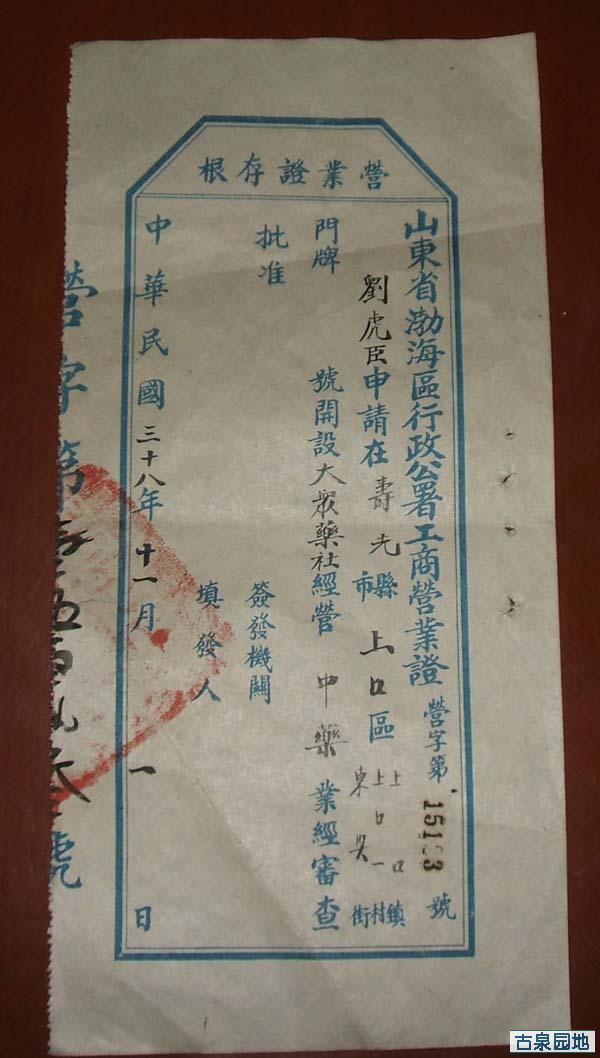 營業證存根
山東省渤海區行政公署工商營業證 營字第 151 3 號
劉虎臣申請在壽光縣市上口區上口鎮村街
門牌 號開設大衆藥社經營中藥業經審查
批准
簽發機關
填發人
中華民國三十八年十一月一日
營字第 伍百 號
古泉园地